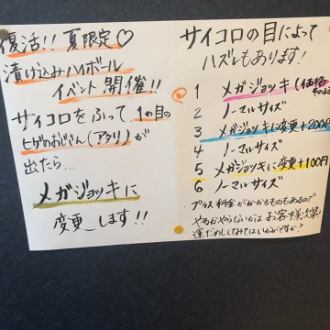 復活!! 夏限定♡
漬け込みハイボール
イベント開催!!
サイコロをふって、1の目の
ヒゲのおじさん(アタリ)が
出たら…
メガジョッキに
変更します!!
サイコロの目によって
ハズレもあります!
1 メガジョッキ(価格
2 ノーマルサイズ
3 メガジョッキに変更+200円
4 ノーマルサイズ
5 メガジョッキに変更+100円
6 ノーマルサイズ
プラス料金がかかるものもあるので
やるかやらないかはお客様次第!
運だめししてみてはいかがですか?